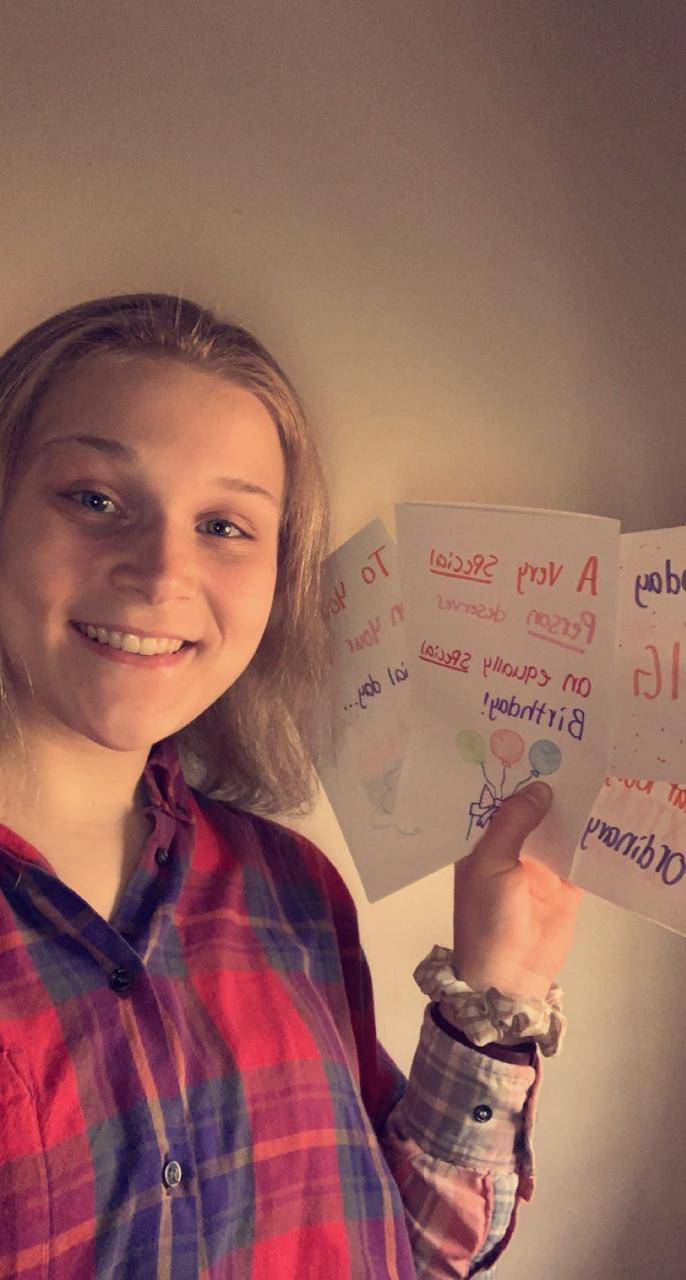 To You
n Your
ial day...
A Very Special
Person deserves
an equally special
Birthday!
day
IG
ordinary